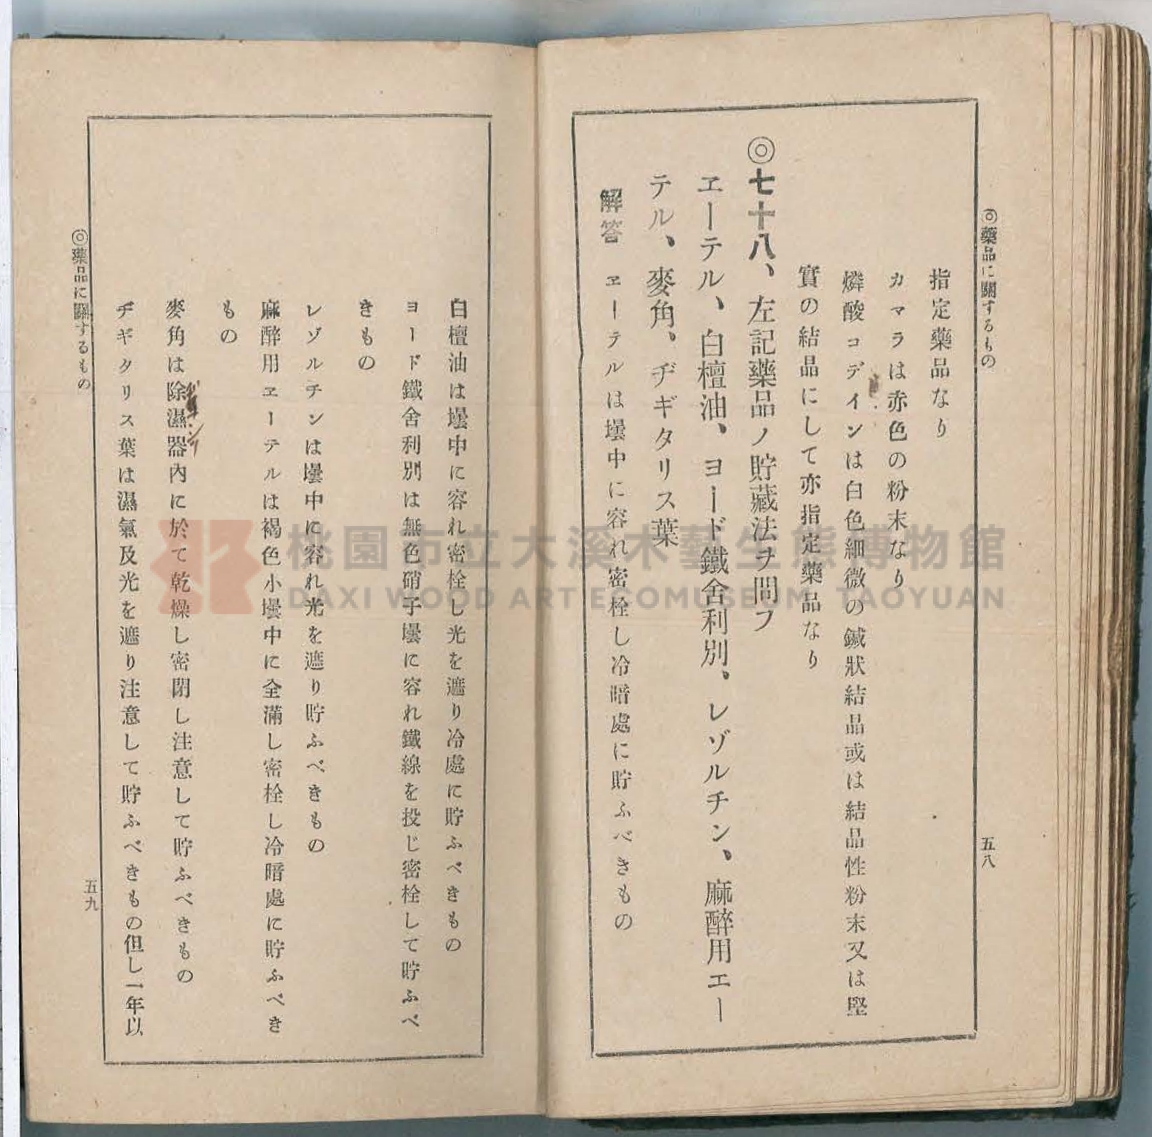 ◎藥品に關するもの
五八
指定藥品なり
カマラは赤色の粉末なり
燐酸コデインは白色細微の鍼狀結品或は結品性粉末又は堅
實の結晶にして亦指定藥品なり
◎七十八、左記藥品ノ貯藏法ヲ問フ
ヱーテル、白檀油、ヨード鐵舍利別、レゾルチン、麻醉用エー
テル、麥角、ヂギタリス葉
解答 ヱーテルは壜中に容れ密栓し冷暗處に貯ふべきもの
白檀油は壜中に容れ密栓し光を遮り冷處に貯ふべきもの
ヨード鐵舍利別は無色硝子壜に容れ鐵線を投じ密栓して貯ふべ
きもの
レゾルチンは壜中に容れ光を遮り貯ふべきもの
麻醉用ヱーテルは褐色小壜中に全滿し密栓し冷暗處に貯ふべき
もの
麥角は除濕器內に於て乾燥し密閉し注意して貯ふべきもの
ヂギタリス葉は濕氣及光を遮り注意して貯ふべきもの但し一年以
◎藥品に關するもの
五九
桃園市立大溪木藝生態博物館
DAXI WOOD ART ECOMUSEUM, TAOYUAN